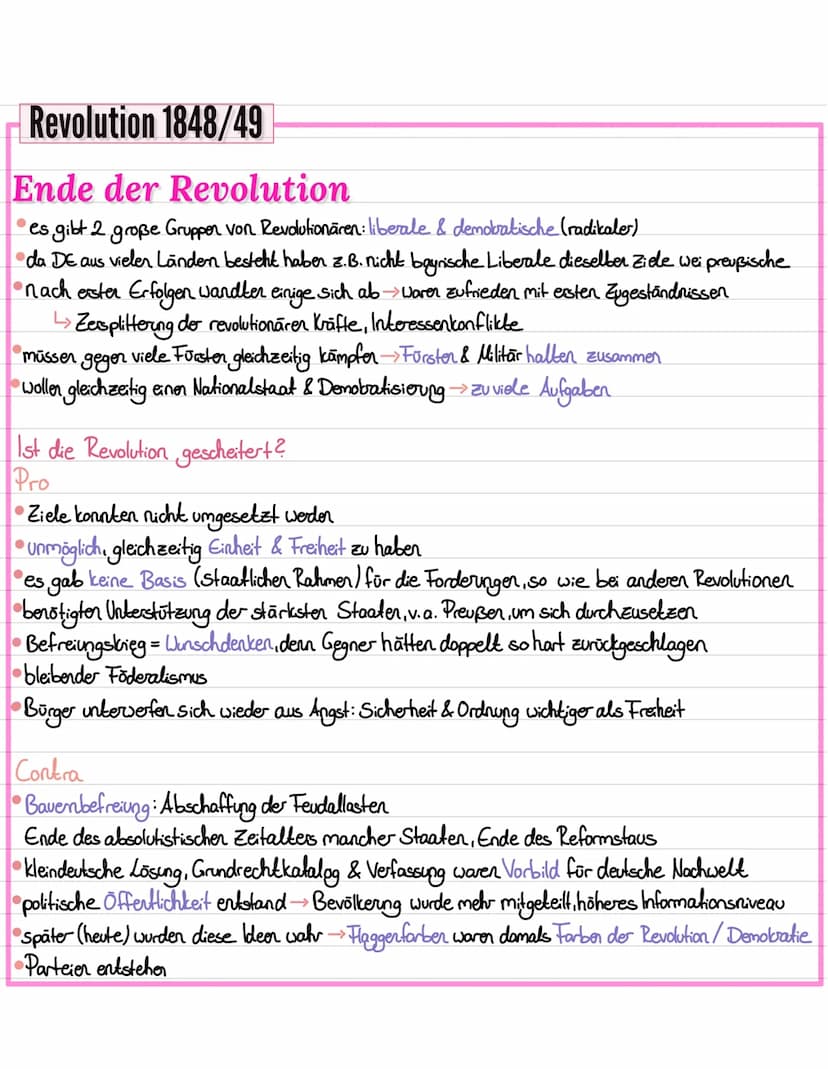 Revolution 1848/49
Ende der Revolution
• es gibt 2 große Gruppen von Revolutionären: liberale & demokratische (radikaler)
• da DE aus vielen Ländern besteht haben z.B. nicht bayrische Liberale dieselben Ziele wei preußische
• nach ersten Erfolgen wandten einige sich ab → waren zufrieden mit ersten Zugeständnissen
↳ Zersplitterung der revolutionären Kräfte, Interessenkonflikte
• müssen gegen viele Fürsten gleichzeitig kämpfen → Fürsten & Militär halten zusammen
• wollen gleichzeitig einen Nationalstaat & Demokratisierung → zu viele Aufgaben
Ist die Revolution gescheitert?
Pro
• Ziele konnten nicht umgesetzt werden
• unmöglich, gleichzeitig Einheit & Freiheit zu haben
• es gab keine Basis (staatlichen Rahmen) für die Forderungen, so wie bei anderen Revolutionen
• benötigten Unterstützung der stärksten Staaten, v.a. Preußen, um sich durchzusetzen
• Befreiungskrieg = Wunschdenken, denn Gegner hätten doppelt so hart zurückgeschlagen
• bleibender Föderalismus
• Bürger unterwerfen sich wieder aus Angst: Sicherheit & Ordnung wichtiger als Freiheit
Contra
• Bauernbefreiung: Abschaffung der Feudallasten
Ende des absolutistischen Zeitalters mancher Staaten, Ende des Reformstaus
• kleindeutsche Lösung, Grundrechtkatalog & Verfassung waren Vorbild für deutsche Nachwelt
• politische Öffentlichkeit entstand → Bevölkerung wurde mehr mitgeteilt, höheres Informationsniveau
• später (heute) wurden diese Ideen wahr → Flaggenfarben waren damals Farben der Revolution / Demokratie
• Parteien entstehen